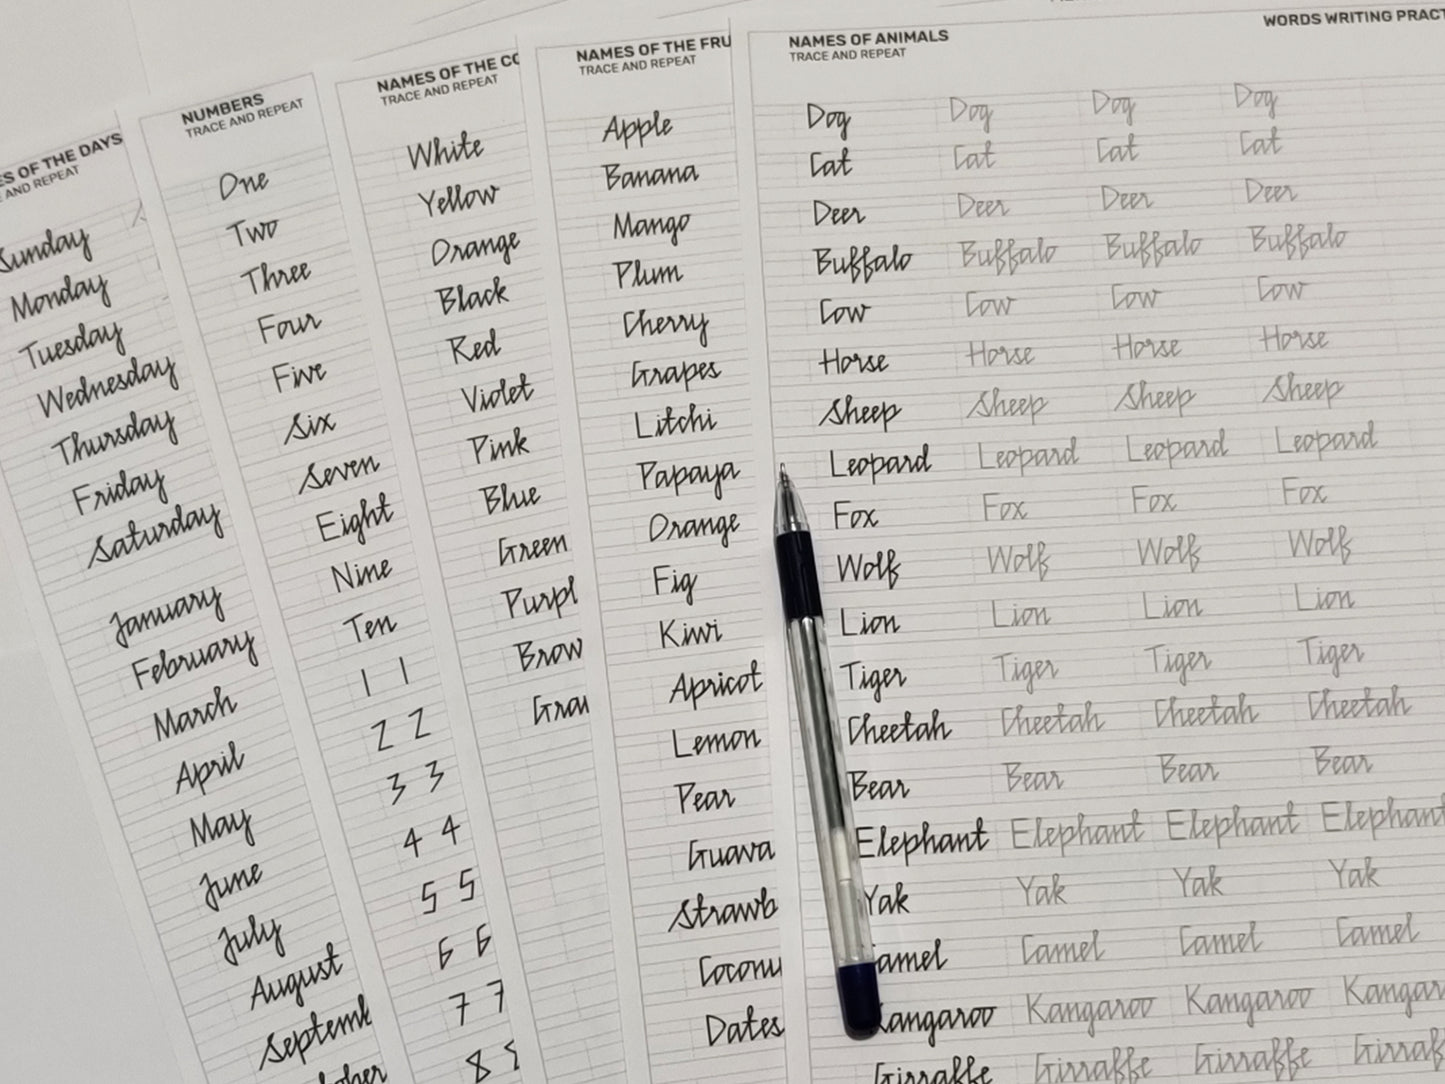 ES OF THE DAYS
E AND REPEAT
Sunday
Monday
Tuesday
Wednesday
Thursday
Friday
Saturday
January
February
March
April
May
June
July
August
Septem
ober
NUMBERS
TRACE AND REPEAT
One
Two
Three
Four
Five
Six
Seven
Eight
Nine
Ten
1 1
2 2
3 3
4 4
5 5
6 6
7 7
8
NAMES OF THE CO
TRACE AND REPEAT
White
Yellow
Orange
Black
Red
Violet
Pink
Blue
Green
Purpl
Brow
Gra
NAMES OF THE FRU
TRACE AND REPEAT
Apple
Banana
Mango
Plum
Cherry
Grapes
Litchi
Papaya
Orange
Fig
Kiwi
Apricot
Lemon
Pear
Guava
Strawb
Coconu
Dates
WORDS WRITING PRACT
NAMES OF ANIMALS
TRACE AND REPEAT
Dog Dog Dog Dog
Cat Cat Cat Cat
Deer Deer Deer Deer
Buffalo Buffalo Buffalo Buffalo
Cow Cow Cow Cow
Horse Horse Horse Horse
Sheep Sheep Sheep Sheep
Leopard Leopard Leopard Leopard
Fox Fox Fox Fox
Wolf Wolf Wolf Wolf
Lion Lion Lion Lion
Tiger Tiger Tiger Tiger
Cheetah Cheetah Cheetah Cheetah
Bear Bear Bear Bear
Elephant Elephant Elephant Elephant
Yak Yak Yak Yak
amel Camel Camel Camel
Kangaroo Kangaroo Kangaroo Kangar
Girraffe Girraffe Girraffe Girraf